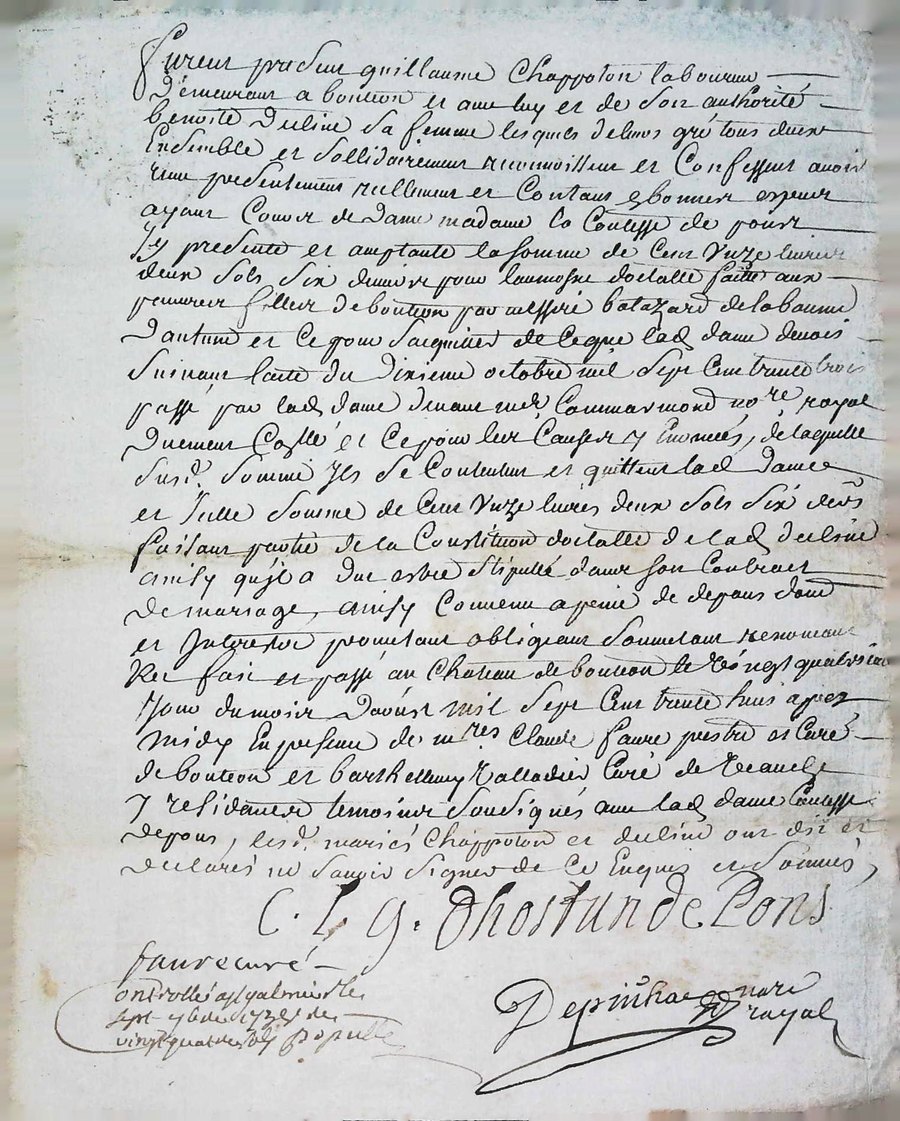 furent presens guillaume Chappoton laboureur
demeurant a bouteon et avec luy et de son authorité
benoite decline sa femme lesquels de leurs gré tous deux
Ensemble et sollidairement reconnoissent et Confessent avoir
receu presentement reellement et Contant
ayant Cours de dame madame la Contesse de pons
Jy presente et acceptante la somme de Cent Unze livres
deux sols six deniers pour laumosne dotalle faitte aux
pauvres filles de bouteon par messire balazard de labaume
Dautun et Ce pour sacquitter de Ceque lad dame devois
suivant lacte du dixieme octobre mil sept Cent trente trois
passé par lad dame devant me Commarmond nore royal
duement Collé et Ce pour les Causes y Enoncées, de laquelle
susd. somme Jls se Contentent et quittent lad dame
et Jcelle somme de Cent Unze livres deux sols six ders
faisant partie de la Constitution dotalle de lad decline
ainsy qu'jl a due estre stipullé dans son Contract
de mariage, ainsy Convenu a peine de depans dom
et Jnterestz promettant obligeant soumettant renonceant
fait et passé au Chateau de bouteon le vingt quatrieme
Jour du mois Daoust mil sept Cent trente huit apres
midy En presence de mres Claude faure prestre et Curé
de bouteon et barthellemy Valladier Curé de Veauche
y residants temoins sousignés avec lad dame Contesse
depons, lesd. mariés Chappoton et decline ont dit et
declarés ne sçavoir signer de Ce Enquis et sommés,
C. L. G. Dhostun de Pons
faure curé
ontrollé a sgalmier le
sept 7bre 1738
vingt quatre sols
nore
royal